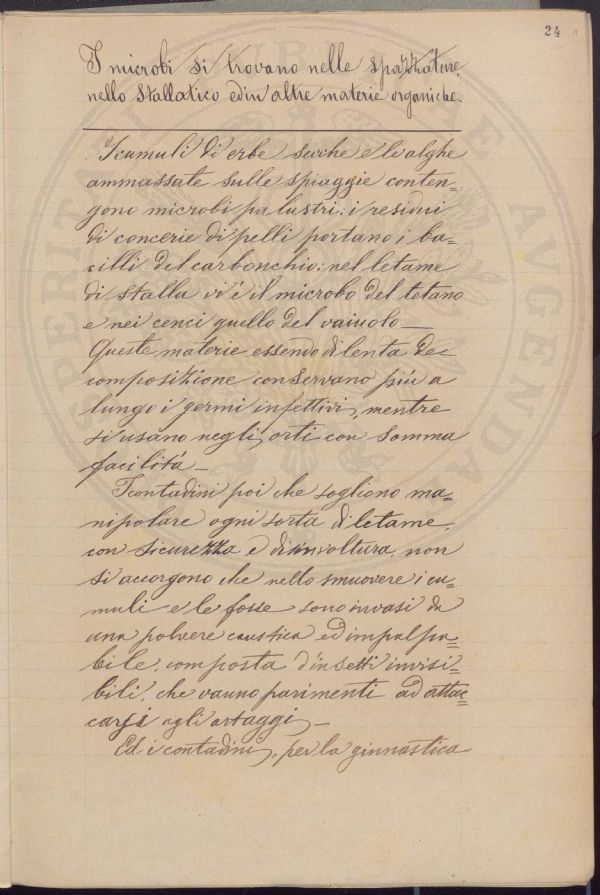 24
I microbi si trovano nelle spazzature,
nello stallatico ed in altre materie organiche.
I cumuli di erbe secche e le alghe
ammassate sulle spiaggie conten=
gono microbi palustri; i residui
di concerie di pelli portano i ba=
cilli del carbonchio; nel letame
di stalla vi è il microbo del tetano
e nei cenci quello del vaiuolo —
Queste materie essendo di lenta de=
composizione conservano più a
lungo i germi infettivi, mentre
si usano negli orti con somma
facilità —
I contadini poi che sogliono ma=
nipolare ogni sorta di letame,
con sicurezza e disinvoltura, non
si accorgono che nello smuovere i cu=
muli e le fosse sono invasi da
una polvere caustica ed impalpa=
bile, composta d'insetti invisi=
bili, che vanno parimenti ad attac=
carsi agli ortaggi —
Ed i contadini, per la ginnastica
SPERITATI PUBLICAE AVGENDA